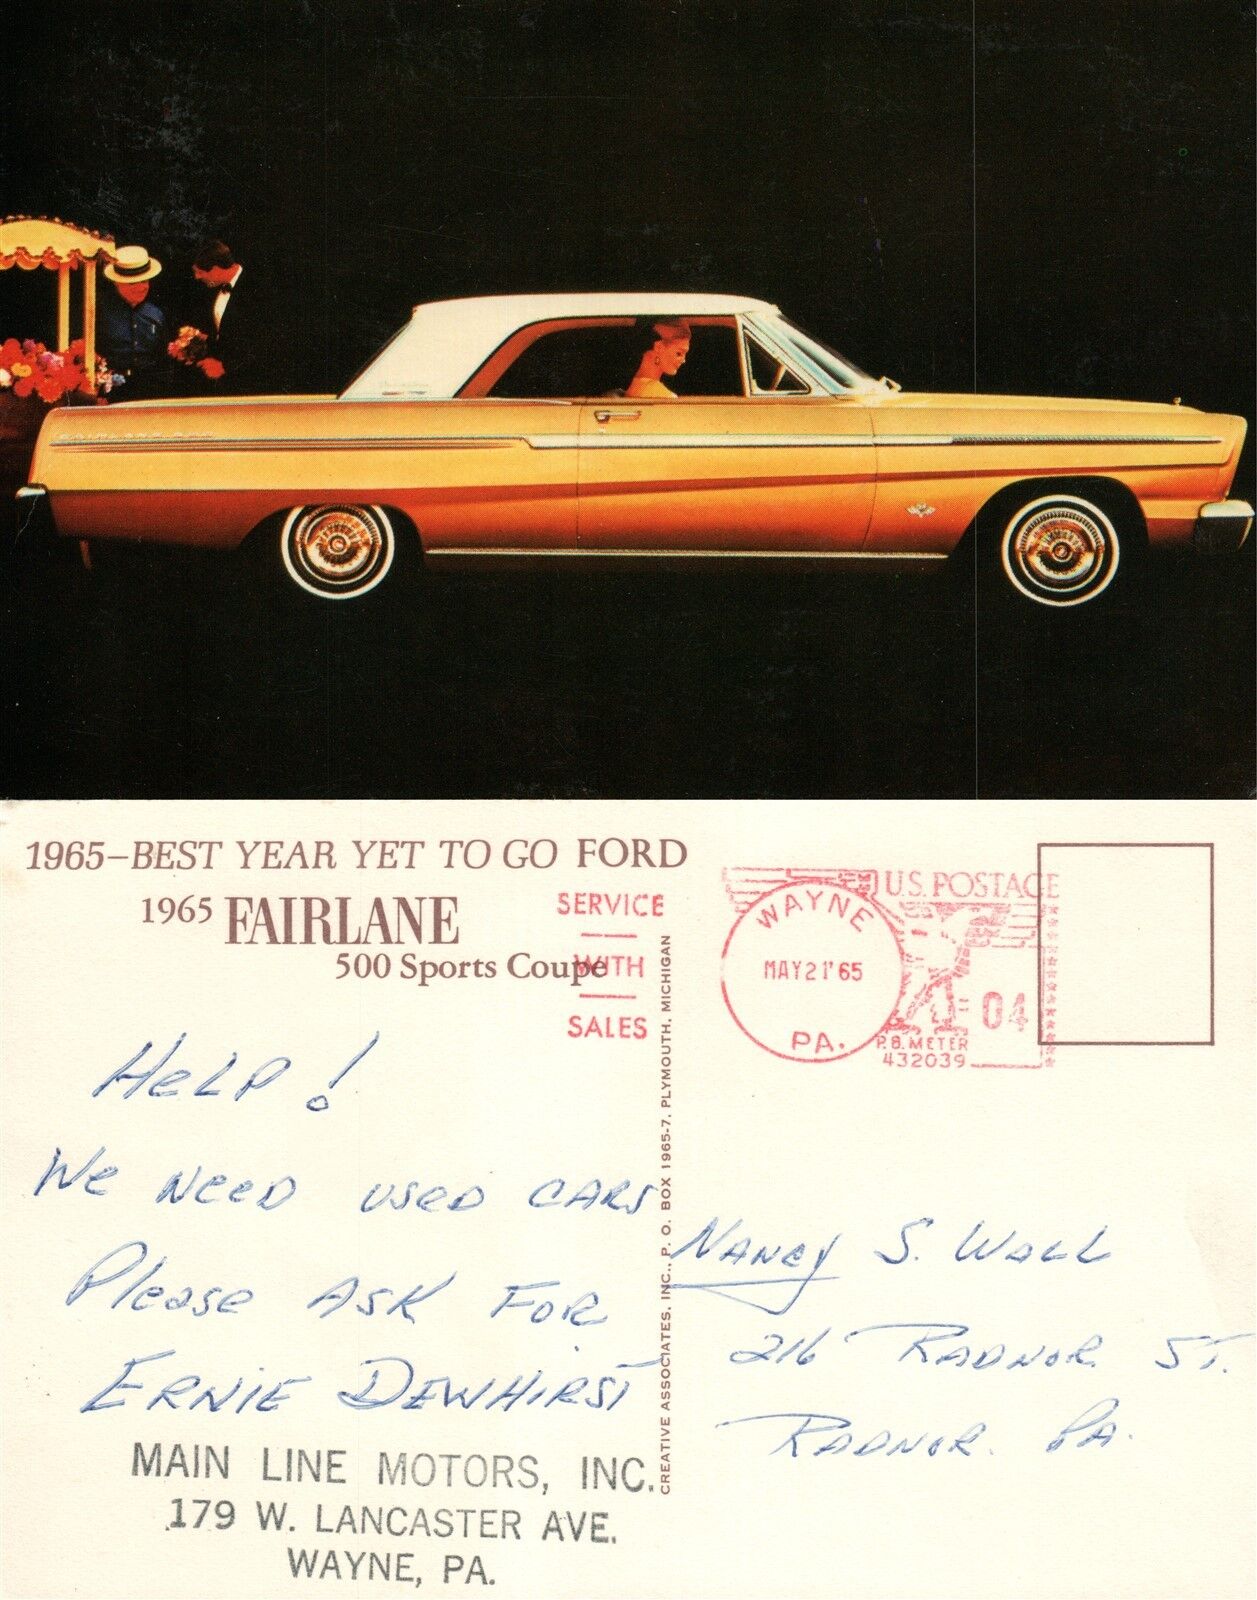 FAIRLANE 500
1965–BEST YEAR YET TO GO FORD
1965 FAIRLANE
500 Sports Coupe
SERVICE
WITH
SALES
HELP!
We NeeD useD CARS
Please ASK FOR
ERNIE DEWHIRST
MAIN LINE MOTORS, INC.
179 W. LANCASTER AVE.
WAYNE, PA.
CREATIVE ASSOCIATES, INC., P. O. BOX 1965-7, PLYMOUTH, MICHIGAN
U.S. POSTAGE
WAYNE
MAY21'65
PA.
04
P.B. METER
432039
NANCY S. WALL
216 RADNOR ST.
RADNOR. PA.